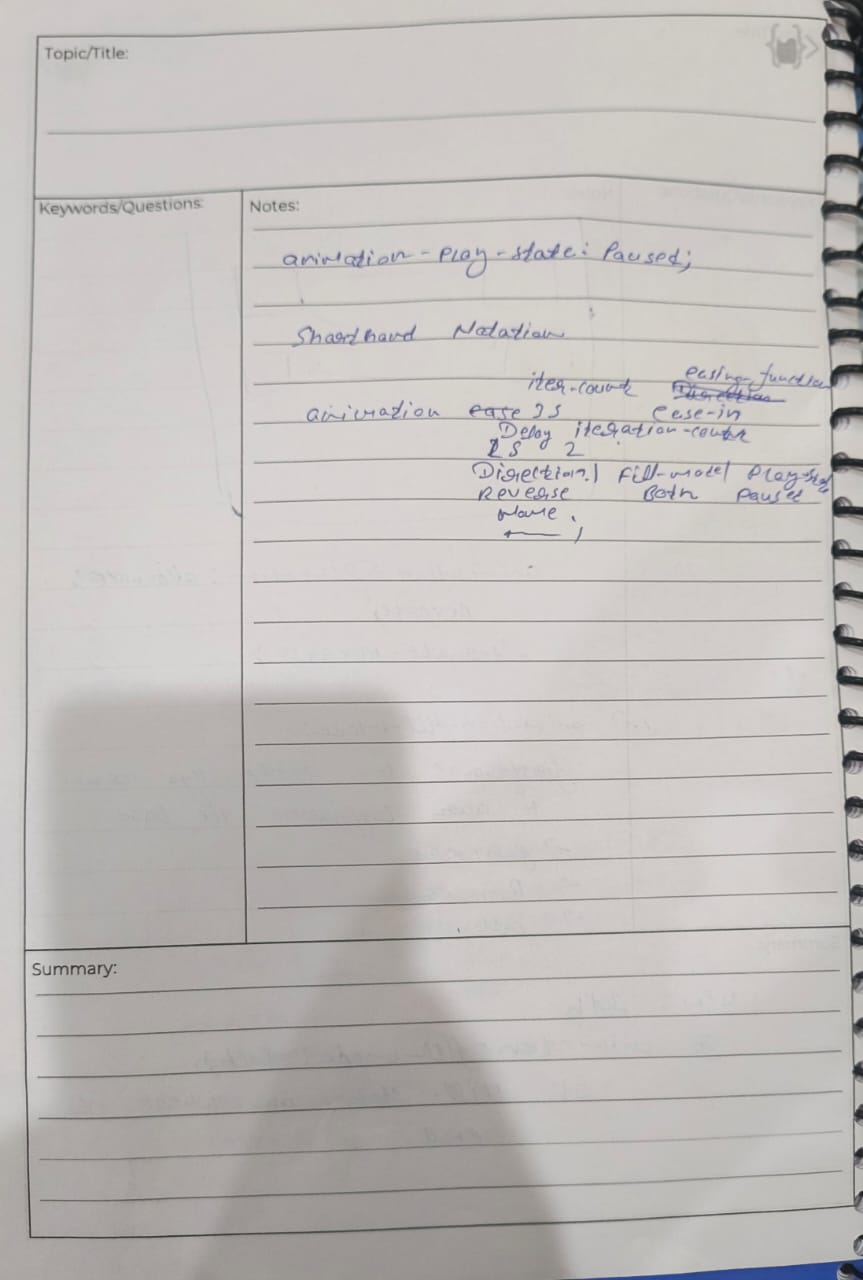 Topic/Title:
Keywords/Questions:
Notes:
animation-Play-state: Paused;
Shorthand Notation
iter-count easing-function
animation ease 3s ease-in
Delay iteration-count
2s 2
Direction | Fill-mode | Play-state
Reverse Both Paused
Name
;
Summary: